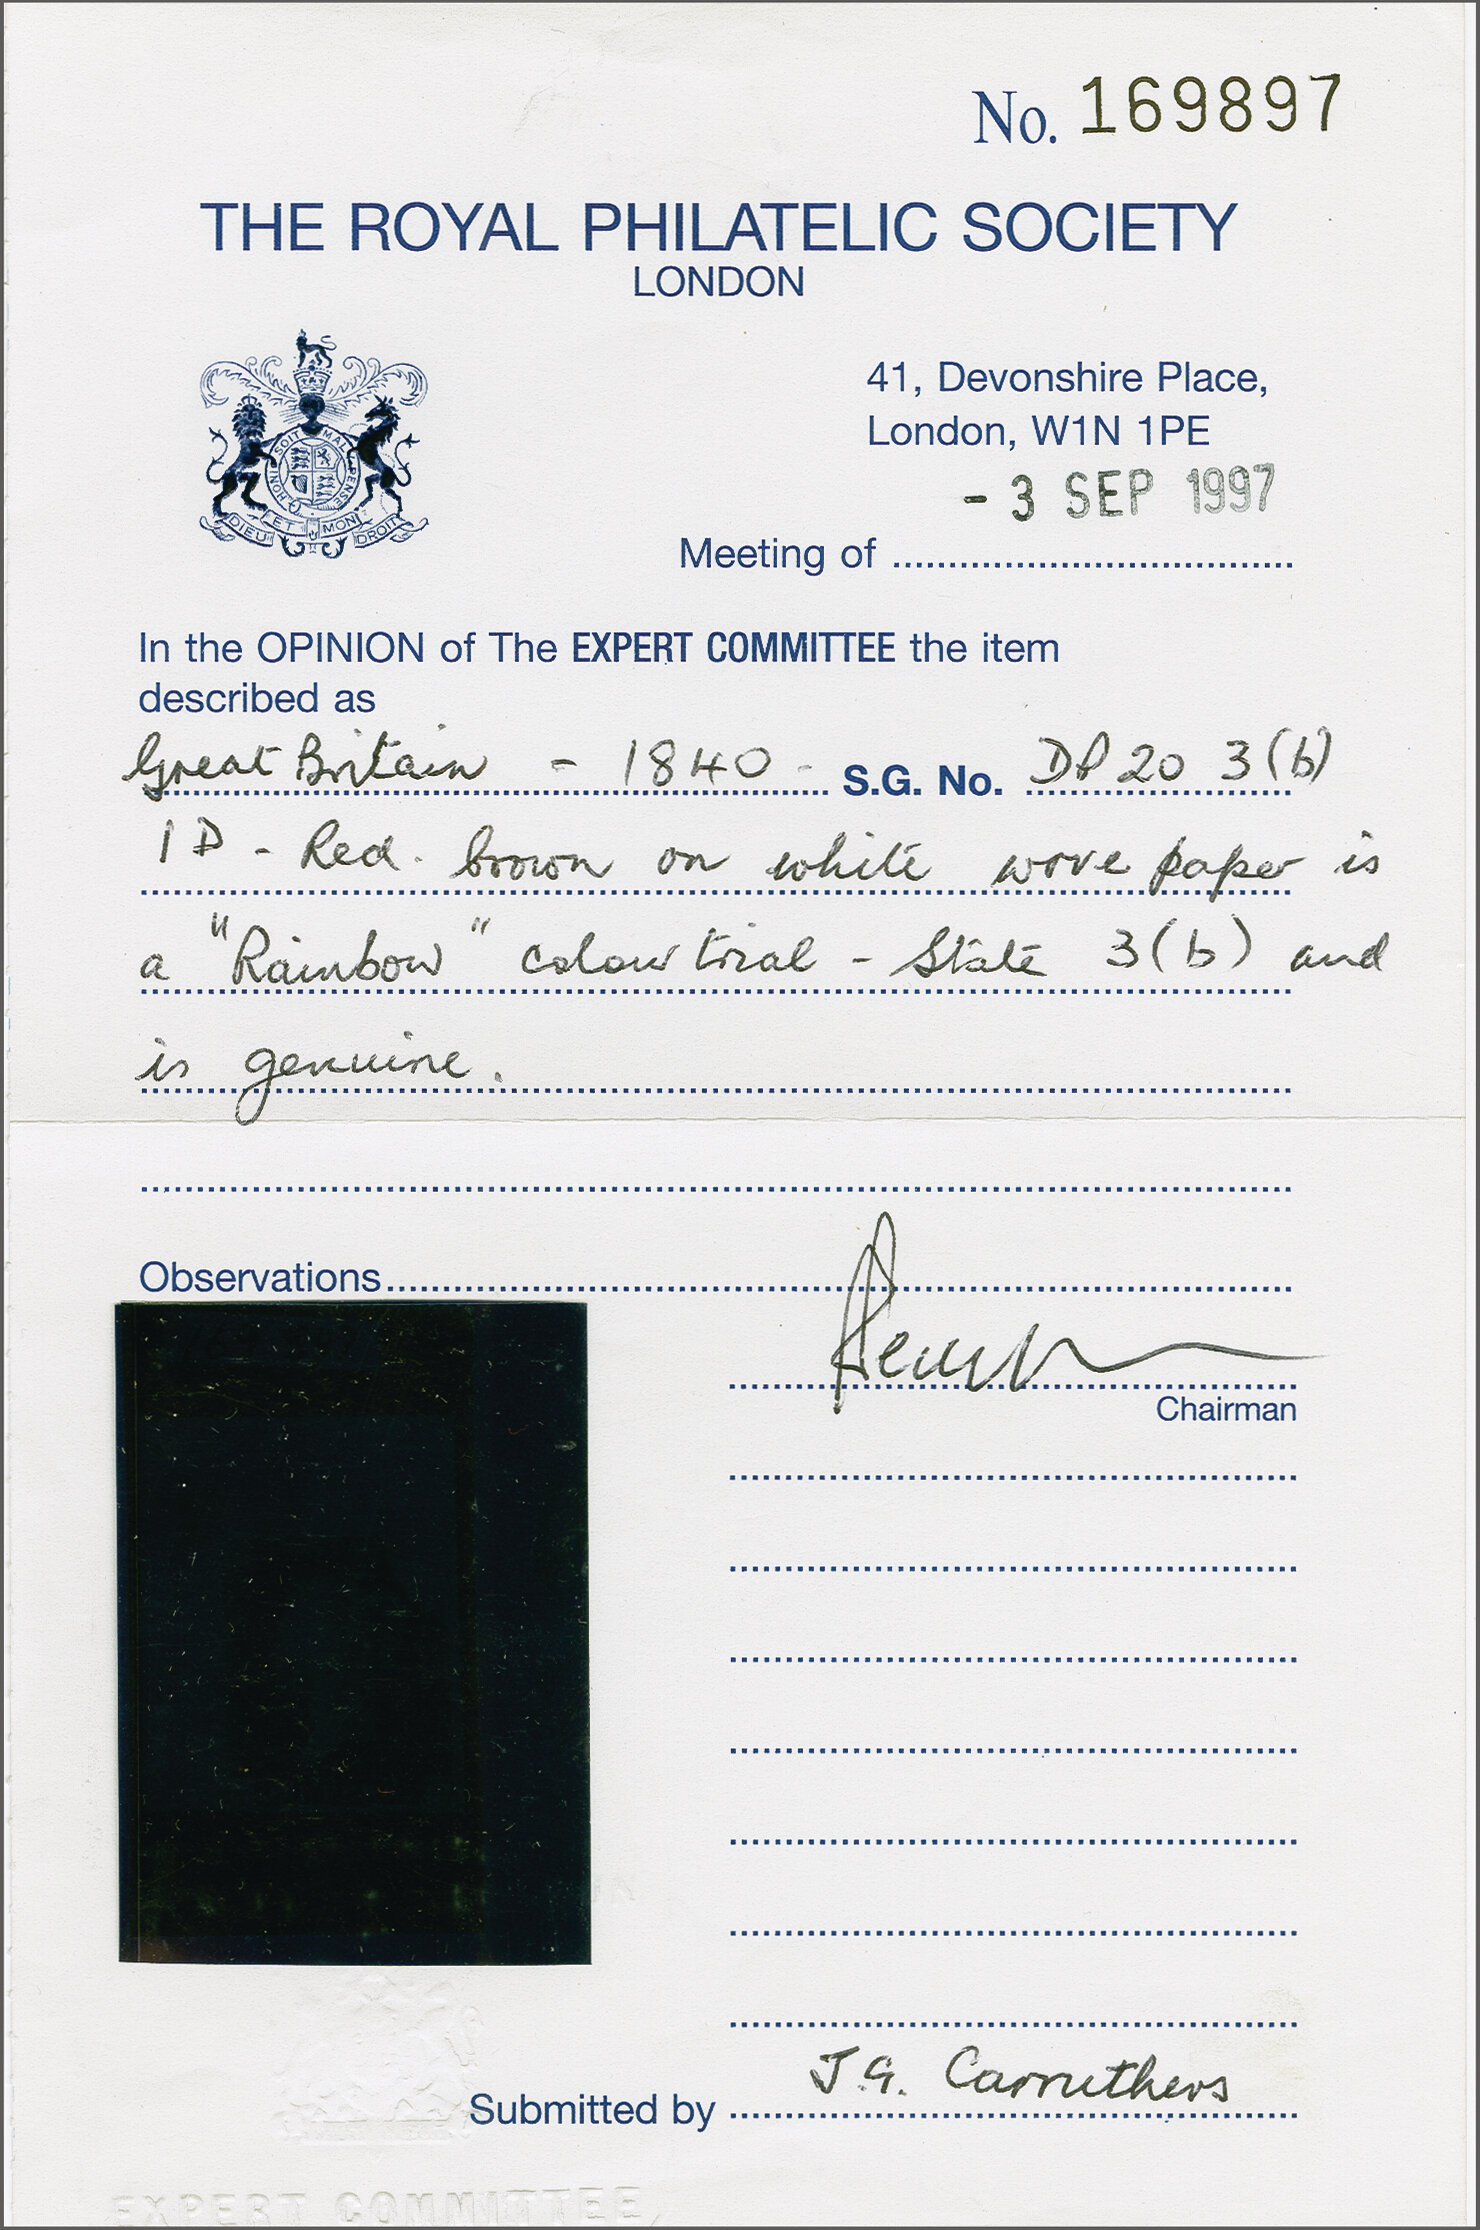 No. 169897
THE ROYAL PHILATELIC SOCIETY
LONDON
HONI SOIT MAL PENSE
DIEU ET MON DROIT
41, Devonshire Place,
London, W1N 1PE
- 3 SEP 1997
Meeting of
In the OPINION of The EXPERT COMMITTEE the item
described as
Great Britain - 1840 - S.G. No. DP 20 3(b)
1D - Red. brown on white wove paper is
a "Rainbow" colour trial - State 3(b) and
is genuine.
Observations
Chairman
Submitted by J.G. Carruthers
EXPERT COMMITTEE